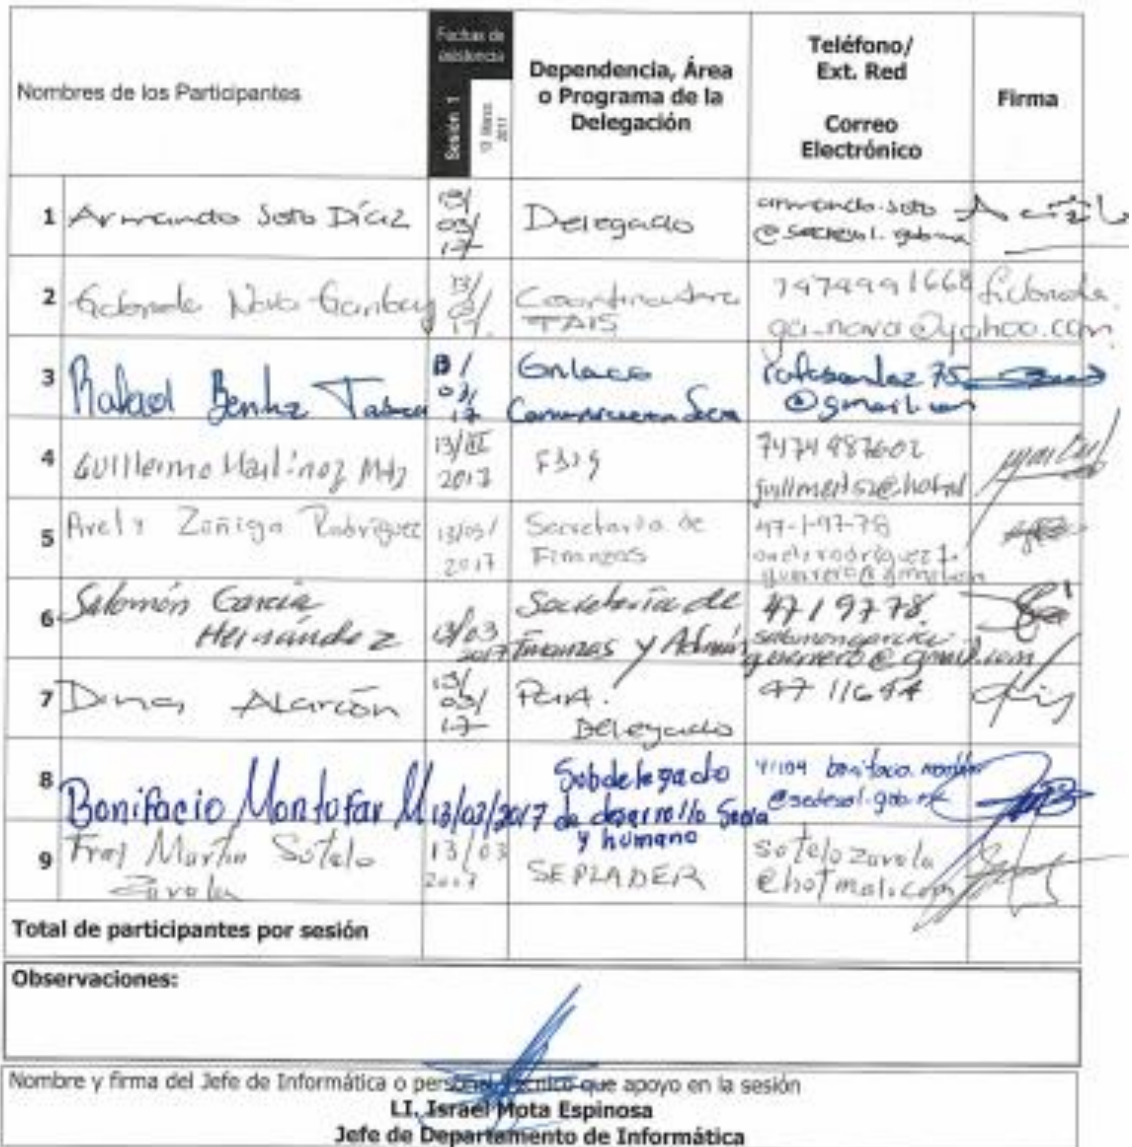 Nombres de los Participantes
Fechas de asistencia
Sesión 1
13 Marzo 2017
Dependencia, Área
o Programa de la
Delegación
Teléfono/
Ext. Red
Correo
Electrónico
Firma
1 Armando Soto Díaz
13/
03/
17
Delegado
armando.soto
2
13/
03/
17
Coordinadora
7474991668
ga_nava@yahoo.com
3 Rafael
13/
03/
17
Enlace
@gmail.com
4 Guillermo Martínez Mtz
13/III
2017
7474987602
5 Arely Zúñiga Rodríguez
13/03/
2017
Secretaría de
Finanzas
47-1-97-78
6 Salomón García
Hernández
13/03
2017
Secretaría de
Finanzas y Admin
4719778
salomongarcia
guerrero@gmail.com
7 Dina Alarcón
13/
03/
17
Delegado
47 11644
8 Bonifacio Montufar M
13/03/2017
Subdelegado
de desarrollo Social
y humano
41104
@sedesol.gob.mx
9 Fray Martín Sotelo
Zavala
13/03
2017
SEPLADER
sotelozavala
@hotmail.com
Total de participantes por sesión
Observaciones:
Nombre y firma del Jefe de Informática o personal técnico que apoyo en la sesión
LI. Israel Mota Espinosa
Jefe de Departamento de Informática